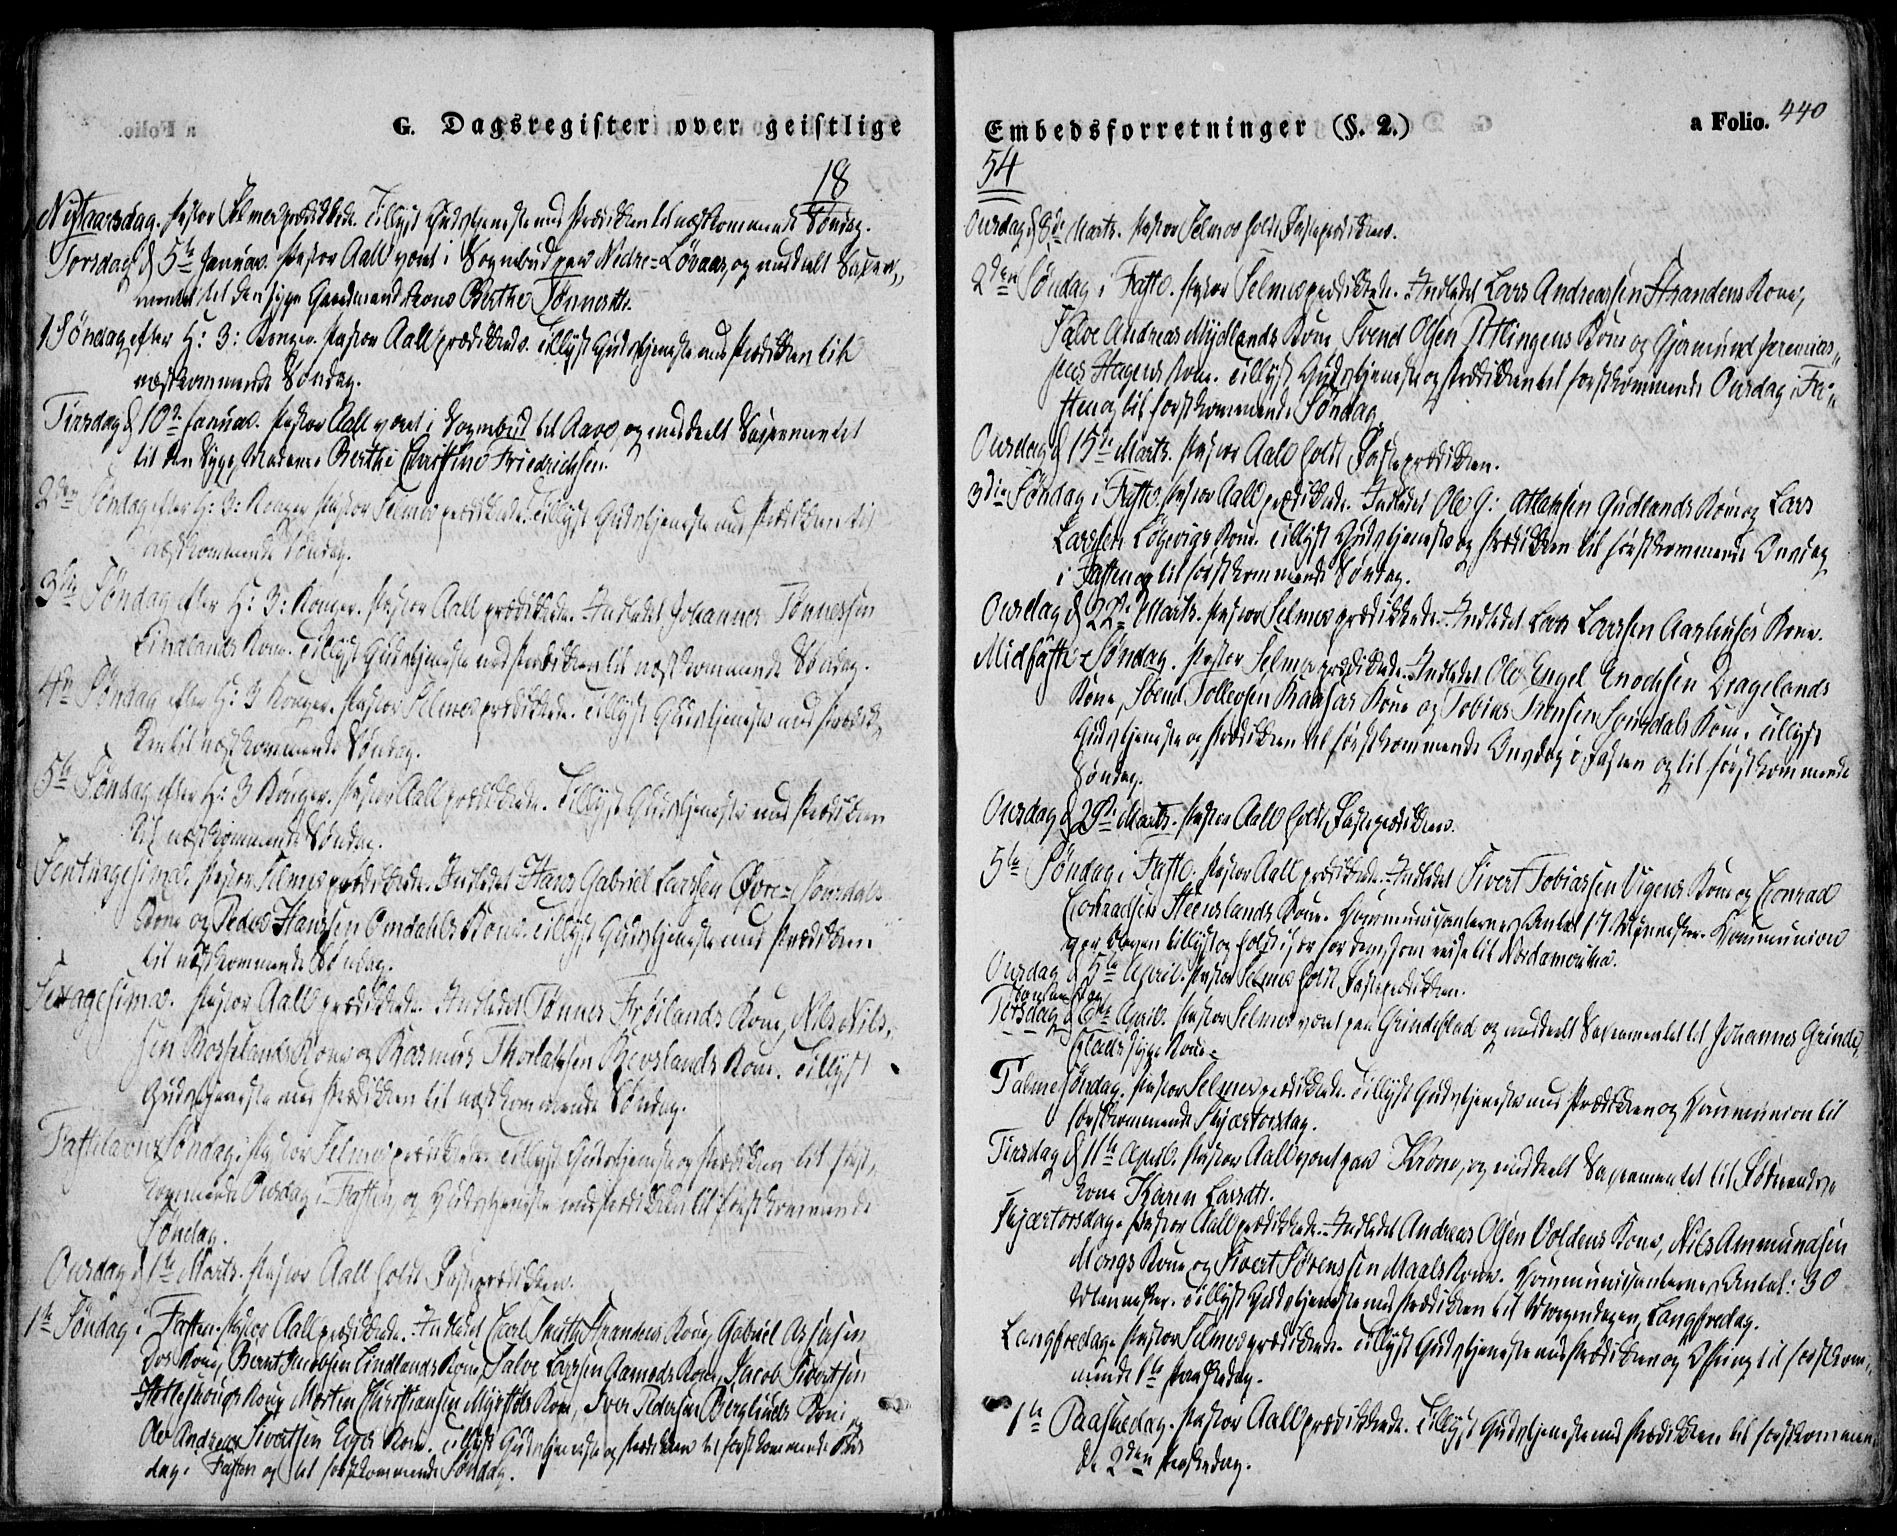 G. Dagsregister over geistlige
18
Nytaarsdag. Pastor Selmer prædikede. Tillyst Gudstjeneste med Prædiken til næstkommende Søndag.
Torsdag d 5te Januar. Pastor Aall været i Sognebud paa Nedre-Løvaas, og meddeelt Sacra-
mentet til den syge Gaardmandskone Berthe Tønnesdtr.
1 Søndag efter H: 3: Konger. Pastor Aall prædikede. Tillyst Gudstjeneste med Prædiken til
næstkommende Søndag.
Tirsdag d 10de Januar. Pastor Aall været i Sognebud til Aaros, og meddeelt Sacramentet
til den syge Madame Berthe Christine Friedrichsen.
2den Søndag efter H: 3: Konger Pastor Selmer prædikede. Tillyst Gudstjeneste med Prædiken til
næstkommende Søndag.
3die Søndag efter H: 3: Konger. Pastor Aall prædikede. Indledet Johannes Tønnessen
Lindlands Kone. Tillyst Gudstjeneste med Prædiken til næstkommende Søndag.
4de Søndag efter H: 3 Konger. Pastor Selmer prædikede. Tillyst Gudstjeneste med Prædi-
ken til næstkommende Søndag.
5te Søndag efter H: 3 Konger. Pastor Aall prædikede. Tillyst Gudstjeneste med Prædiken
til næstkommende Søndag.
Septuagesima. Pastor Selmer prædikede. Indledet Hans Gabriel Larssen Øvre-
Kone og Peder Hanssen Omdahls Kone. Tillyst Gudstjeneste med Prædiken
til næstkommende Søndag.
Sexagesima. Pastor Aall prædikede. Indledet Tønnes Frøilands Kone, Nils Nils-
sen Kone og Rasmus Kone. Tillyst
Gudstjeneste med Prædiken til næstkommende Søndag.
Fastelavns Søndag. Pastor Selmer prædikede. Tillyst Gudstjeneste og Prædiken til først-
kommende Onsdag i Fasten, og Gudstjeneste med Prædiken til førstkommende
Søndag.
Onsdag d 1te Marts. Pastor Aall holdt Fasteprædiken.
1te Søndag i Fasten. Pastor Aall prædikede. Indledet Carl Smith Strandens Kone, Gabriel
Kone, Bernt Jacobsen Lindlands Kone, Salve Larssen Kone, Jacob Sivertsen
Kone, Morten Christiansen Kone, Iver Pedersen Berglunds Kone og
Ole Andreas Sivertsen Kone. Tillyst Gudstjeneste og Prædiken til førstkommende Ons-
dag i Fasten og til førstkommende Søndag.
Embedsforretninger (§. 2.)
a Folio. 440
54
Onsdag d 8de Marts. Pastor Selmer holdt Fasteprædiken.
2den Søndag i Faste. Pastor Selmer prædikede. Indledet Lars Andreassen Strandens Kone,
Salve Andreas Mydlands Kone Svend Olsen Kone og Gjermund Jeremias-
sens Hagens Kone. Tillyst Gudstjeneste og Prædiken til førstkommende Onsdag i Fa-
sten og til førstkommende Søndag.
Onsdag d 15de Marts. Pastor Aall holdt Fasteprædiken.
3die Søndag i Faste. Pastor Aall prædikede. Indledet Ole G: Gudlands Kone og Lars
Larssen Kone. Tillyst Gudstjeneste og Prædiken til førstkommende Onsdag
i Fasten og til førstkommende Søndag.
Onsdag d 22de Marts. Pastor Selmer prædikede. Indledet Lars Larssen Kone.
Midfaste-Søndag. Pastor Selmer prædikede. Indledet Ole Engel Enochsen Dragelands
Kone, Svend Tollevsen Kone og Tobias Kone. Tillyst
Gudstjeneste og Prædiken til førstkommende Onsdag i Fasten og til førstkommende
Søndag.
Onsdag d 29de Marts. Pastor Aall holdt Fasteprædiken.
5te Søndag i Faste. Pastor Aall prædikede. Indledet Sivert Tobiassen Kone og Conrad
Conradsen Steenslands Kone. Communicanternes Antal 17 Mennesker. Communion
var bleven tillyst og holdt især for dem, som reise til Nordamerika.
Onsdag d 5te April. Pastor Selmer holdt Fasteprædiken.
Torsdag d 6te April. Pastor Selmer været paa Grindeslad og meddeelt Sacramentet til Johannes Grinde-
slads syge Kone.
Palmesøndag. Pastor Selmer prædikede. Tillyst Gudstjeneste med Prædiken og Communion til
førstkommende Skjærtorsdag.
Tirsdag d 11te April. Pastor Aall været paa og meddeelt Sacramentet til
kone Karen Larsdtr.
Skjærtorsdag. Pastor Aall prædikede. Indledet Andreas Olsen Voldens Kone, Nils Ammundsen
Mongs Kone og Sivert Sørenssen Maals Kone. Communicanternes Antal: 30
Mennesker. Tillyst Gudstjeneste med Prædiken til Morgendagen, Langfredag.
Langfredag. Pastor Selmer prædikede. Tillyst Gudstjeneste med Prædiken og Offring til førstkom-
mende 1te Paaskedag.
1te Paaskedag. Pastor Aall prædikede. Tillyst Gudstjeneste med Prædiken til førstkommen-
de 2den Paaskedag.